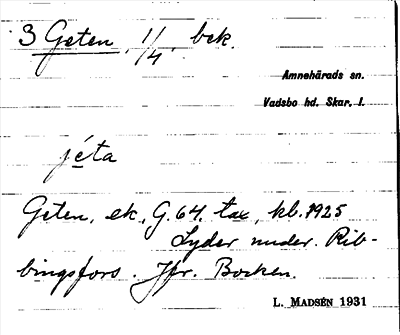 3 Geten, 1/1 1/4. bek.
Amnehärads sn.
Vadsbo hd. Skar. l.
jéta
Geten, ek., G. 64. tax, kb. 1925
Lyder under. Rib-
bingsfors. Jfr. Bocken.
L. MADSÉN 1931